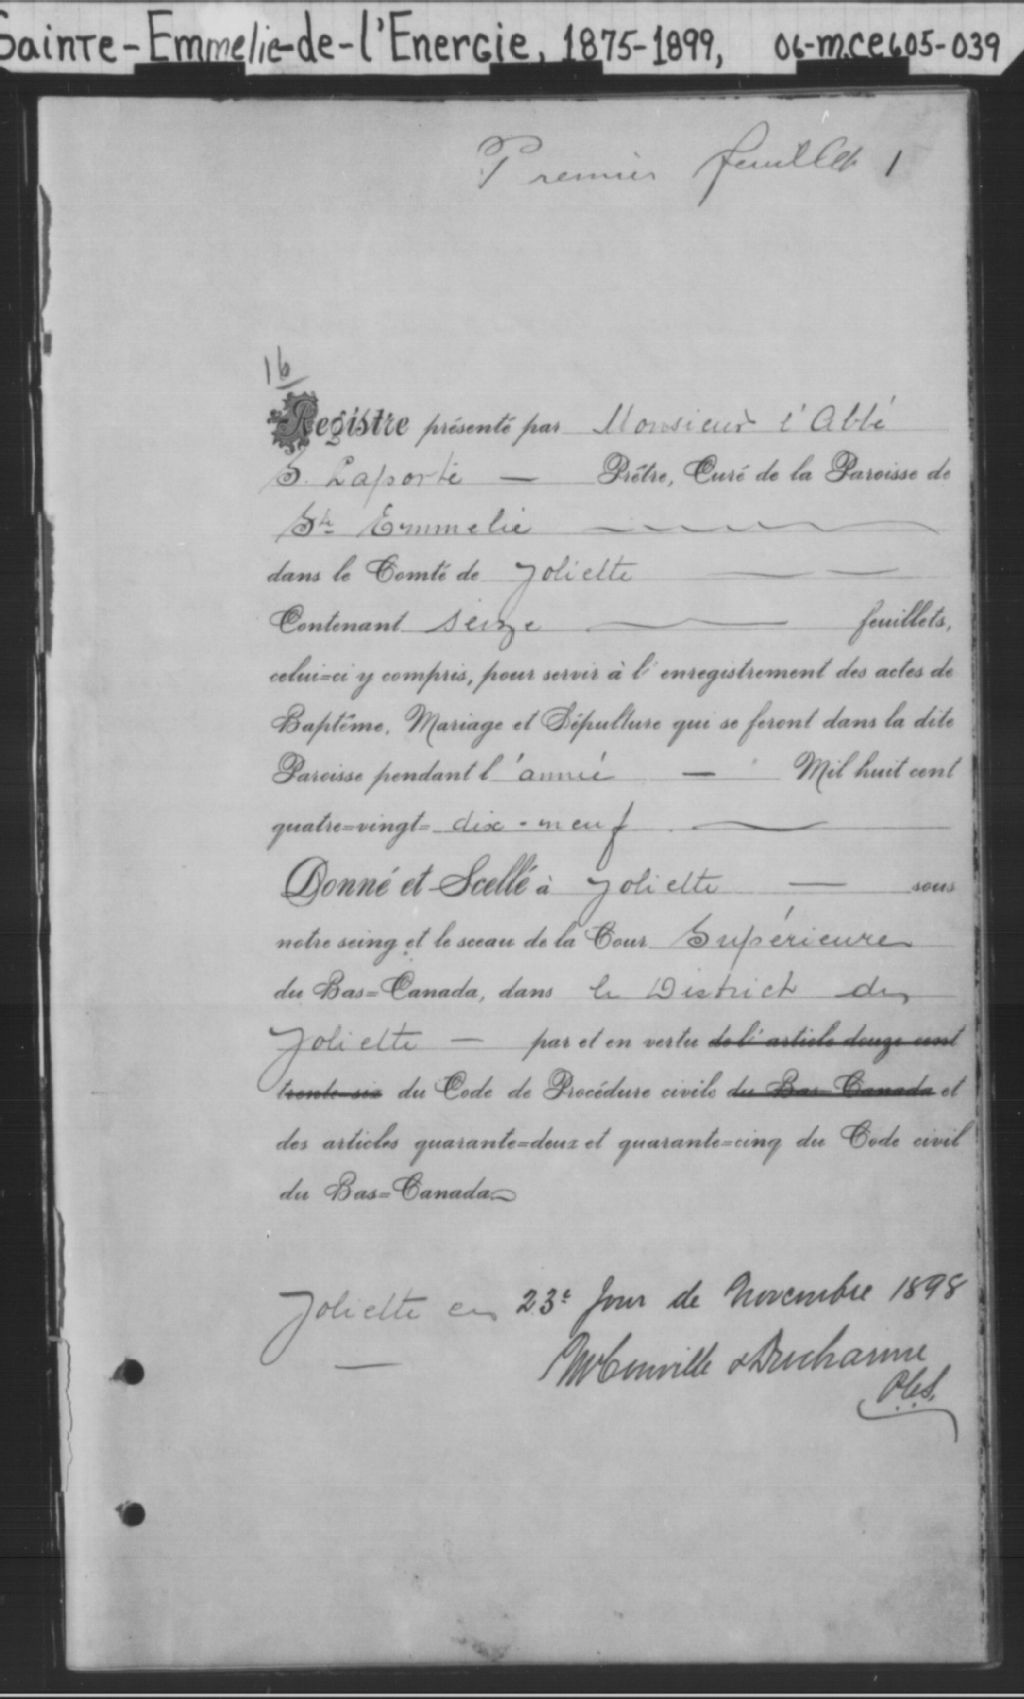 Sainte-Emmelie-de-l'Energie, 1875-1899, 06-M.CE605-039
Premier feuillet 1
16
Registre présenté par Monsieur l'Abbé
S. Laporte — Prêtre, Curé de la Paroisse de
Ste Emmelie
dans le Comté de Joliette
Contenant seize feuillets,
celui=ci y compris, pour servir à l'enregistrement des actes de
Baptême, Mariage et Sépulture qui se feront dans la dite
Paroisse pendant l'année — Mil huit cent
quatre=vingt= dix-neuf
Donné et Scellé à Joliette — sous
notre seing et le sceau de la Cour Supérieure
du Bas=Canada, dans le District de
Joliette — par et en vertu de l'article douze cent
trente-six du Code de Procédure civile du Bas-Canada et
des articles quarante=deux et quarante=cinq du Code civil
du Bas=Canada
Joliette ce 23e Jour de Novembre 1898
& Ducharme
P.C.S.